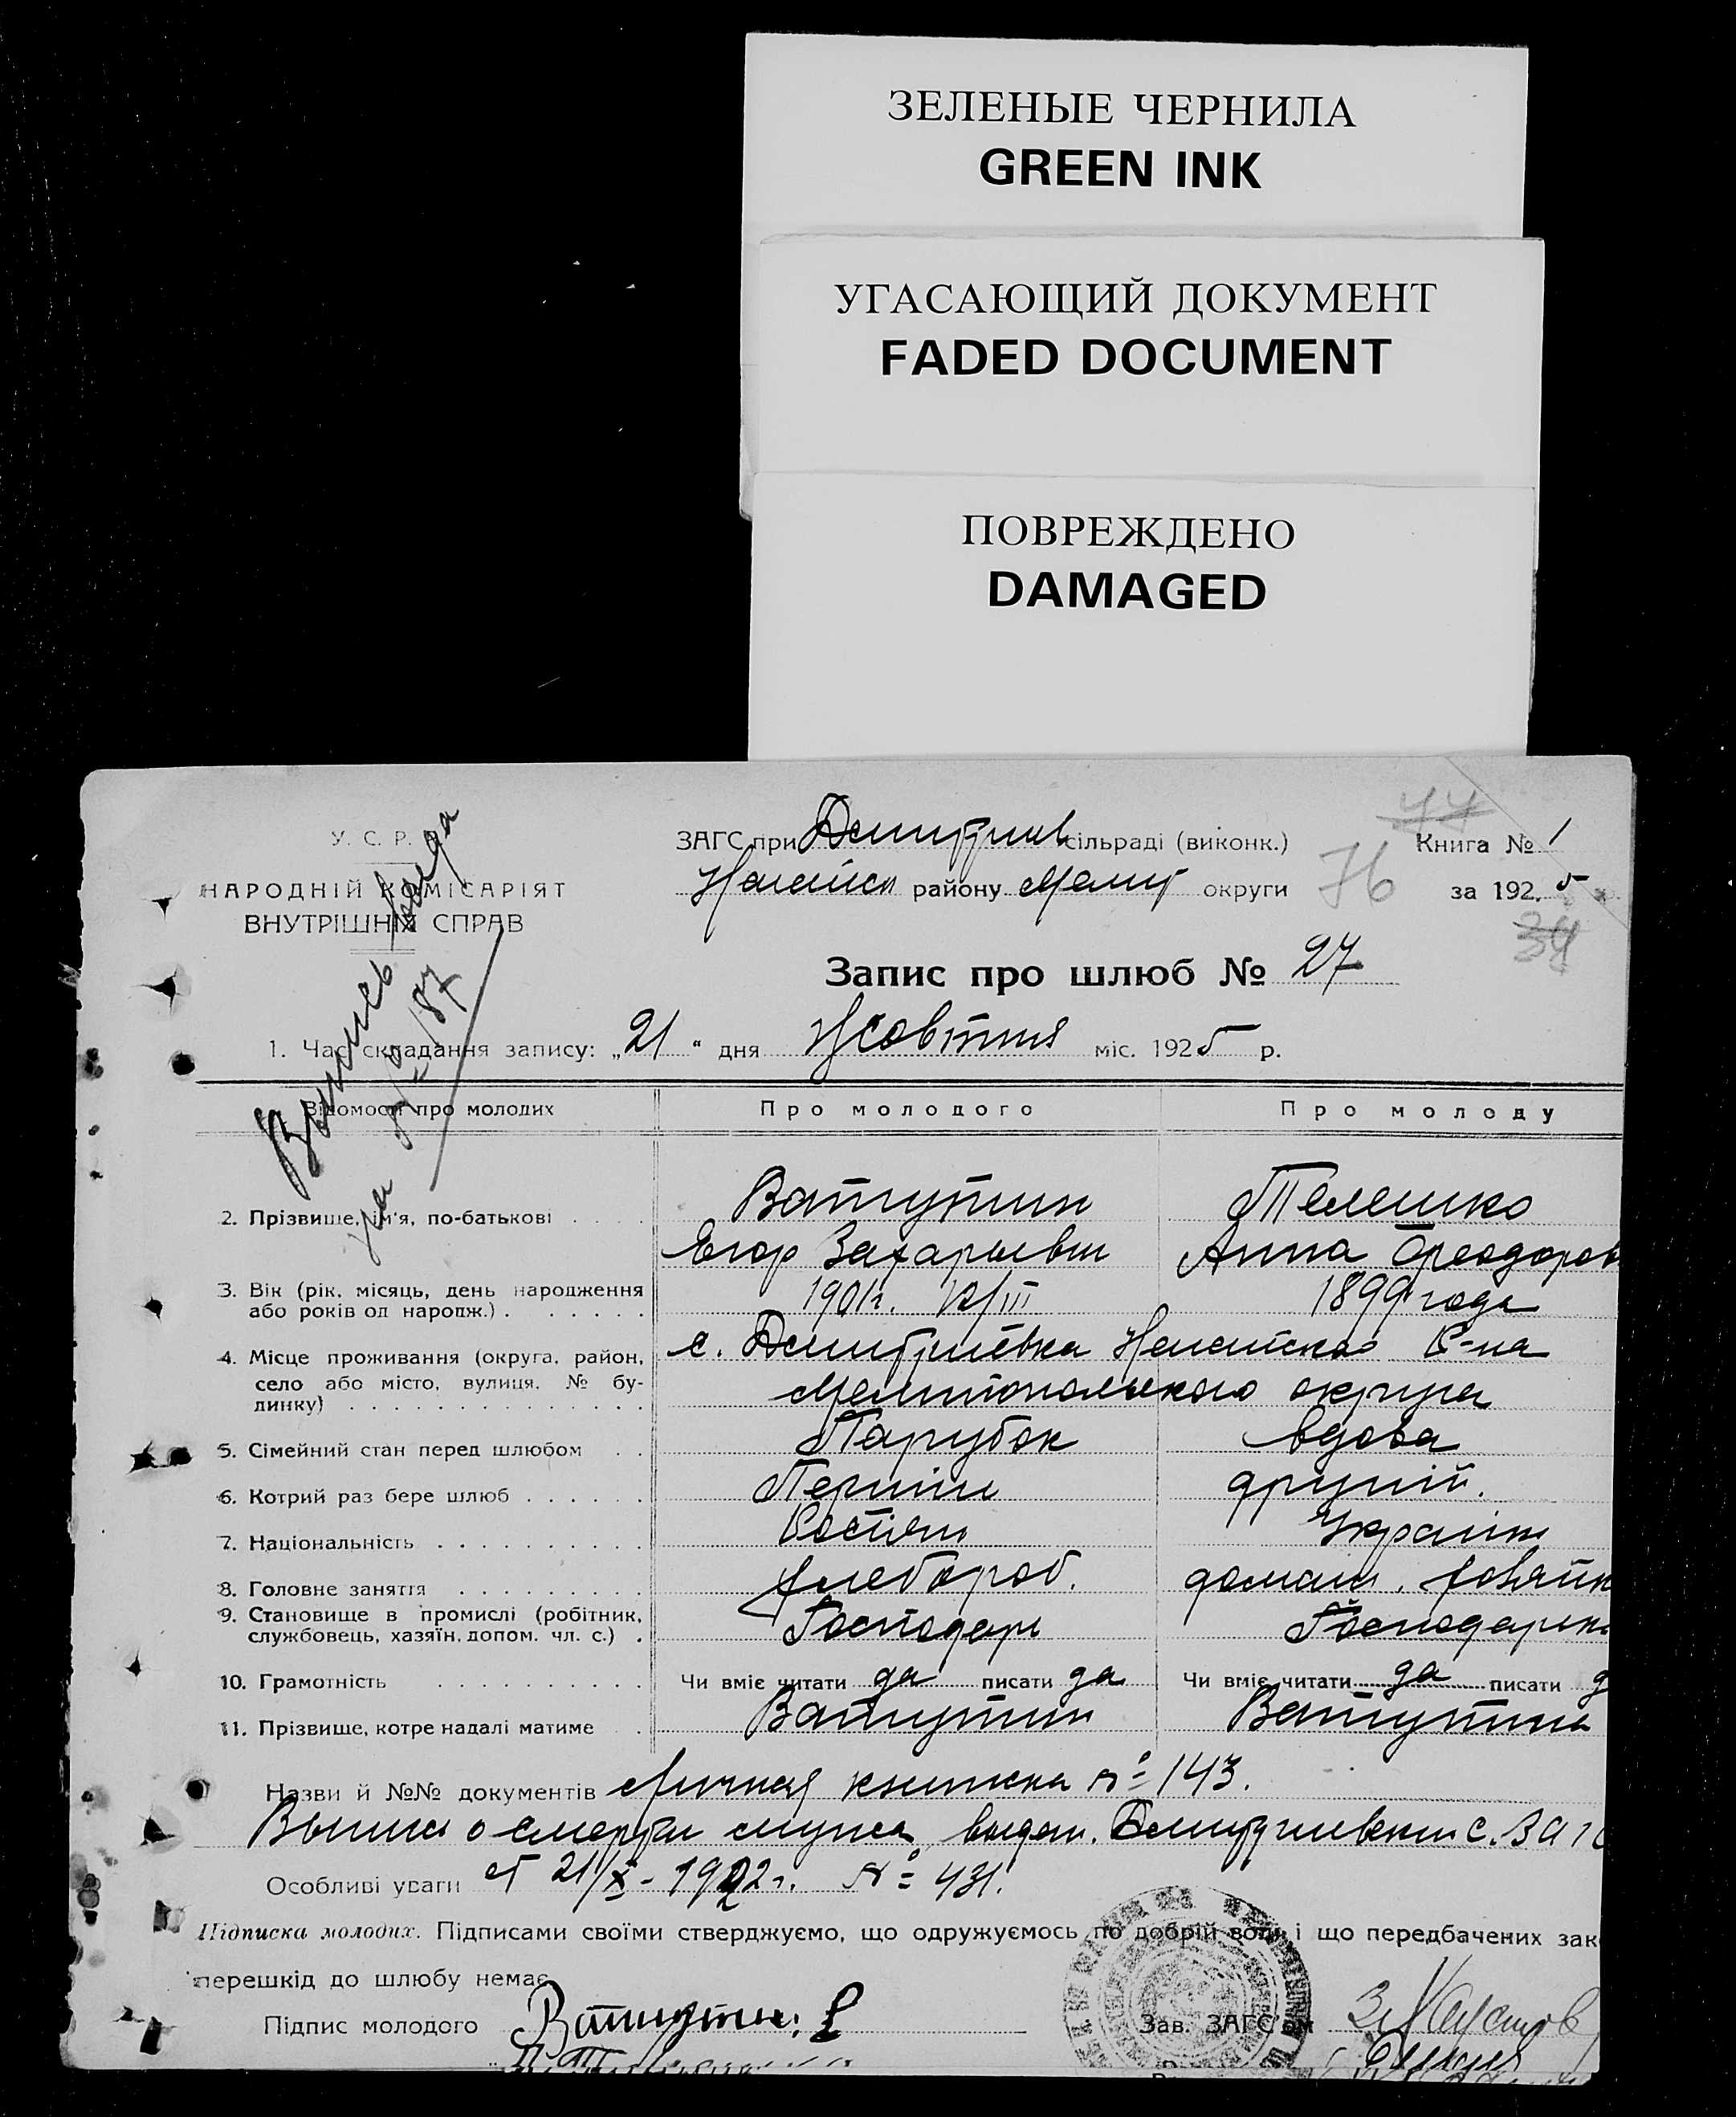 ЗЕЛЕНЫЕ ЧЕРНИЛА
GREEN INK
УГАСАЮЩИЙ ДОКУМЕНТ
FADED DOCUMENT
ПОВРЕЖДЕНО
DAMAGED
У. С. Р. Р.
НАРОДНІЙ КОМІСАРІЯТ
ВНУТРІШНІХ СПРАВ
ЗАГС при Дмитриев сільраді (виконк.)
Ногайск району Мелит округи
44
76
Книга № 1
за 1925
34
Запис про шлюб № 27
1. Час складання запису: „21“ дня Жовтня міс. 1925 р.
Відомости про молодих
Про молодого
Про молоду
2. Прізвище, ім'я, по-батькові
Ватутин
Телешко
Егор Захарьевич
Анна Феодоров
3. Вік (рік. місяць, день народження
або років од народж.)
1901г.
1899 года
4. Місце проживання (округа, район,
село або місто, вулиця, № бу-
динку)
с. Дмитриевка Ногайского Р-на
Мелитопольского округа
5. Сімейний стан перед шлюбом
Парубок
вдова
6. Котрий раз бере шлюб
Перший
другий.
7. Національність
Росіян
Україн
8. Головне заняття
хлебороб.
домаш. хозяйк
9. Становище в промислі (робітник,
службовець, хазяїн, допом. чл. с.)
Господарь
Господарка
10. Грамотність
Чи вміє читати да писати да
Чи вміє читати да писати д
11. Прізвище, котре надалі матиме
Ватутин
Ватутина
Назви й №№ документів Личная книжка № 143.
Выпись о смерти мужа выдан. Дмитриевским с. ЗАГС
Особливі уваги от 21/X-1922г. № 431.
Підписка молодих. Підписами своїми стверджуємо, що одружуємось по добрій волі і що передбачених зак
перешкід до шлюбу немає
Підпис молодого Ватутин Е
Зав. ЗАГС'ом